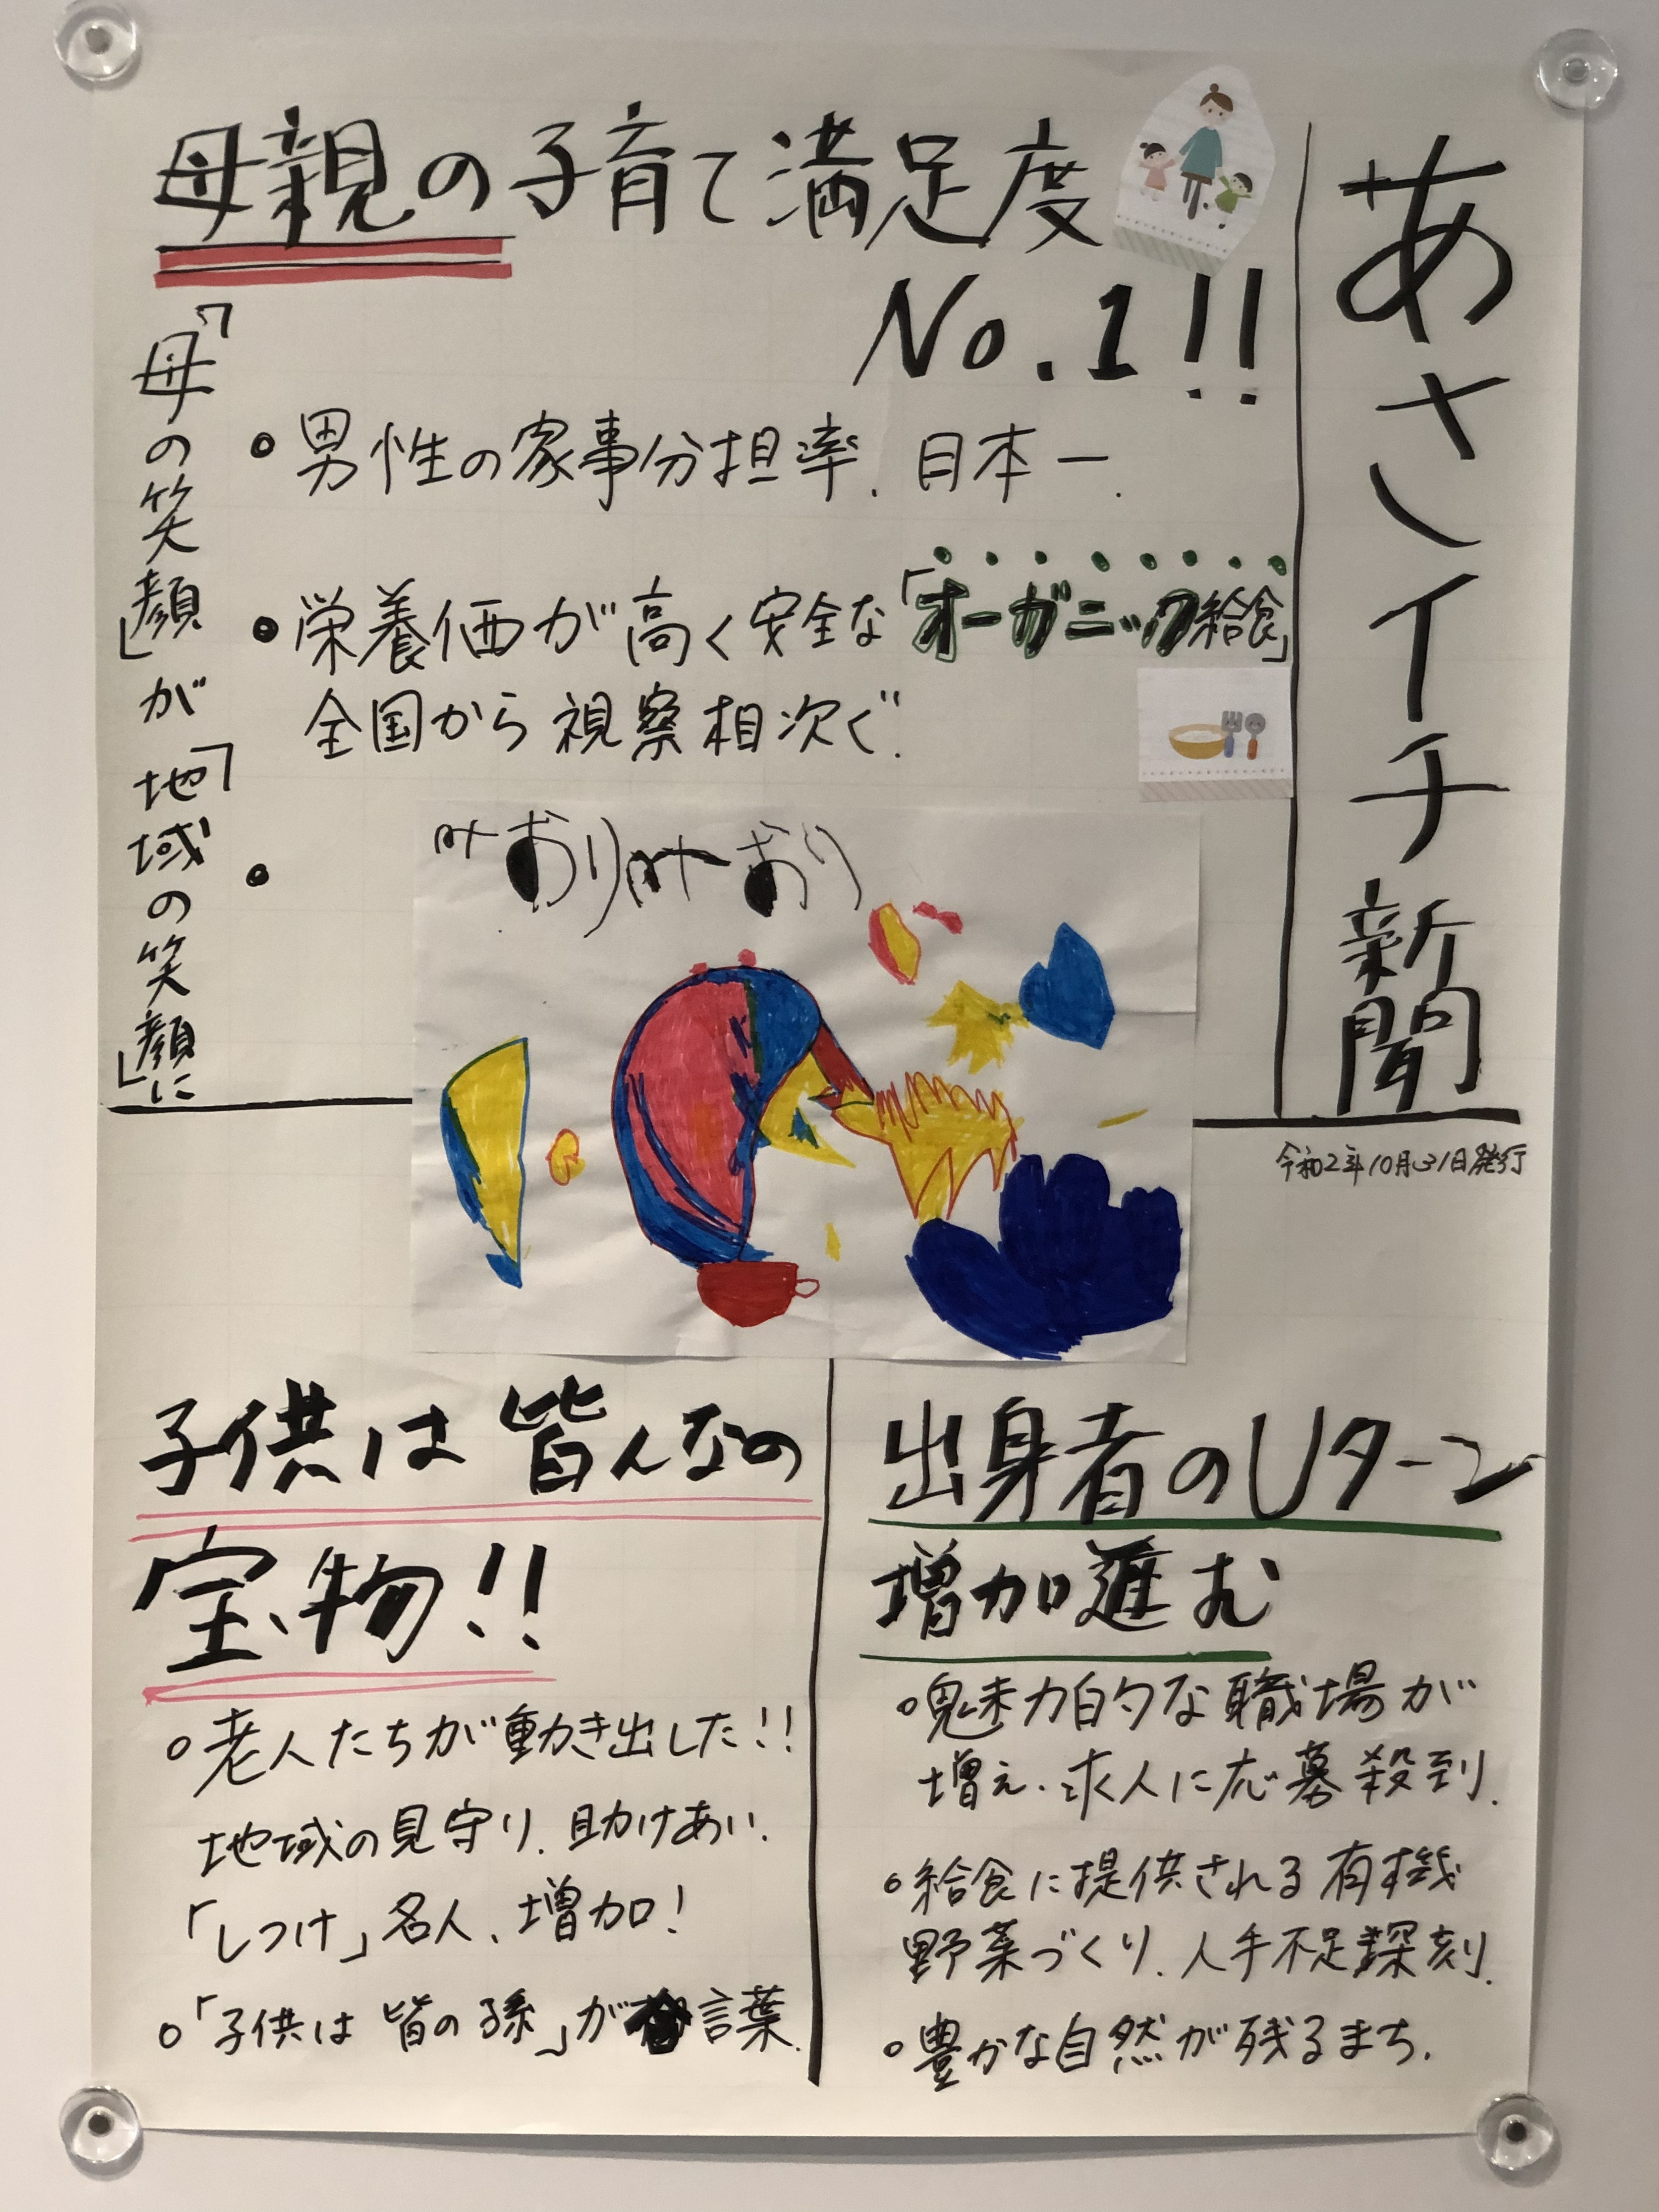 あさイチ新聞
令和2年10月31日発行
母親の子育て満足度
No.1!!
「母の笑顔」が「地域の笑顔」に
• 男性の家事分担率、日本一.
• 栄養価が高く安全な「オーガニック給食」
全国から視察相次ぐ.
•
みおりみおり
子供は皆んなの
宝物!!
○老人たちが動き出した!!
地域の見守り、助けあい、
「しつけ」名人、増加!
○「子供は皆の孫」が合言葉.
出身者のUターン
増加進む
○魅力的な職場が
増え、求人に応募殺到.
○給食に提供される有機
野菜づくり、人手不足深刻.
○豊かな自然が残るまち.